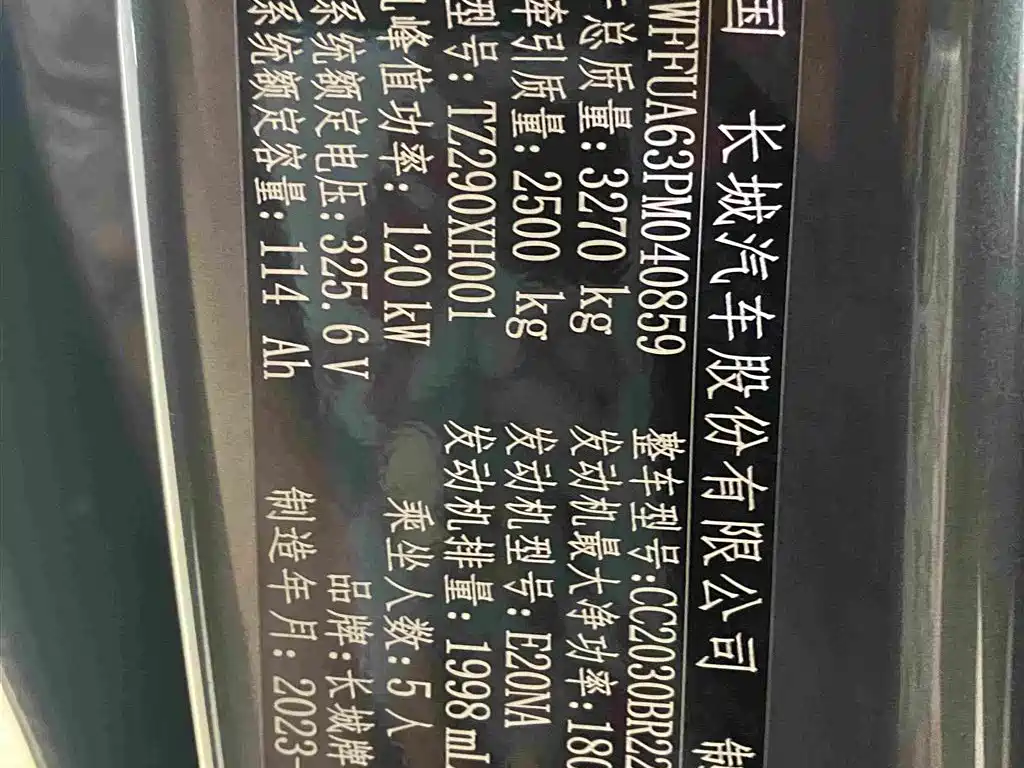 国 长城汽车股份有限公司
WFFUA63PM040859 整车型号:CC2030BR22
总质量:3270 kg 发动机最大净功率:180
牵引质量:2500 kg 发动机型号:E20NA
型号: TZ290XH001 发动机排量:1998 mL
峰值功率:120kW 乘坐人数:5人
系统额定电压:325.6V 品牌:长城牌
系统额定容量:114 Ah 制造年月: 2023-